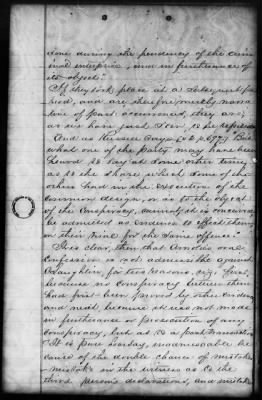 done during the pendency of the crim
inal enterprise, and in furtherance of
its object."
If they took place at a subsequent pe
riod, and are therefore merely narra
tive of past occurrences, they are,
as we have just seen, to be rejected
what one of the party may have been
heard to say at some other time,
as to the share which some of the
others had in the execution of the
common design, or as to the object
of the conspiracy, cannot, it is conceived,
be admitted as evidence to affect them
on their trial for the same offence."
It is clear, then that Arnold's oral
confession is not admissible against
O'Laughlin, for two reasons, viz: first,
because no conspiracy between them
had first been proved by other evidence
and next, because it was not made
in furtherance or prosecution of any
conspiracy, but as to a past transaction
It is pure hearsay, inadmissible be
cause of the double chance of mistake
mistake in the witness as to the
third person's declarations, and mistake